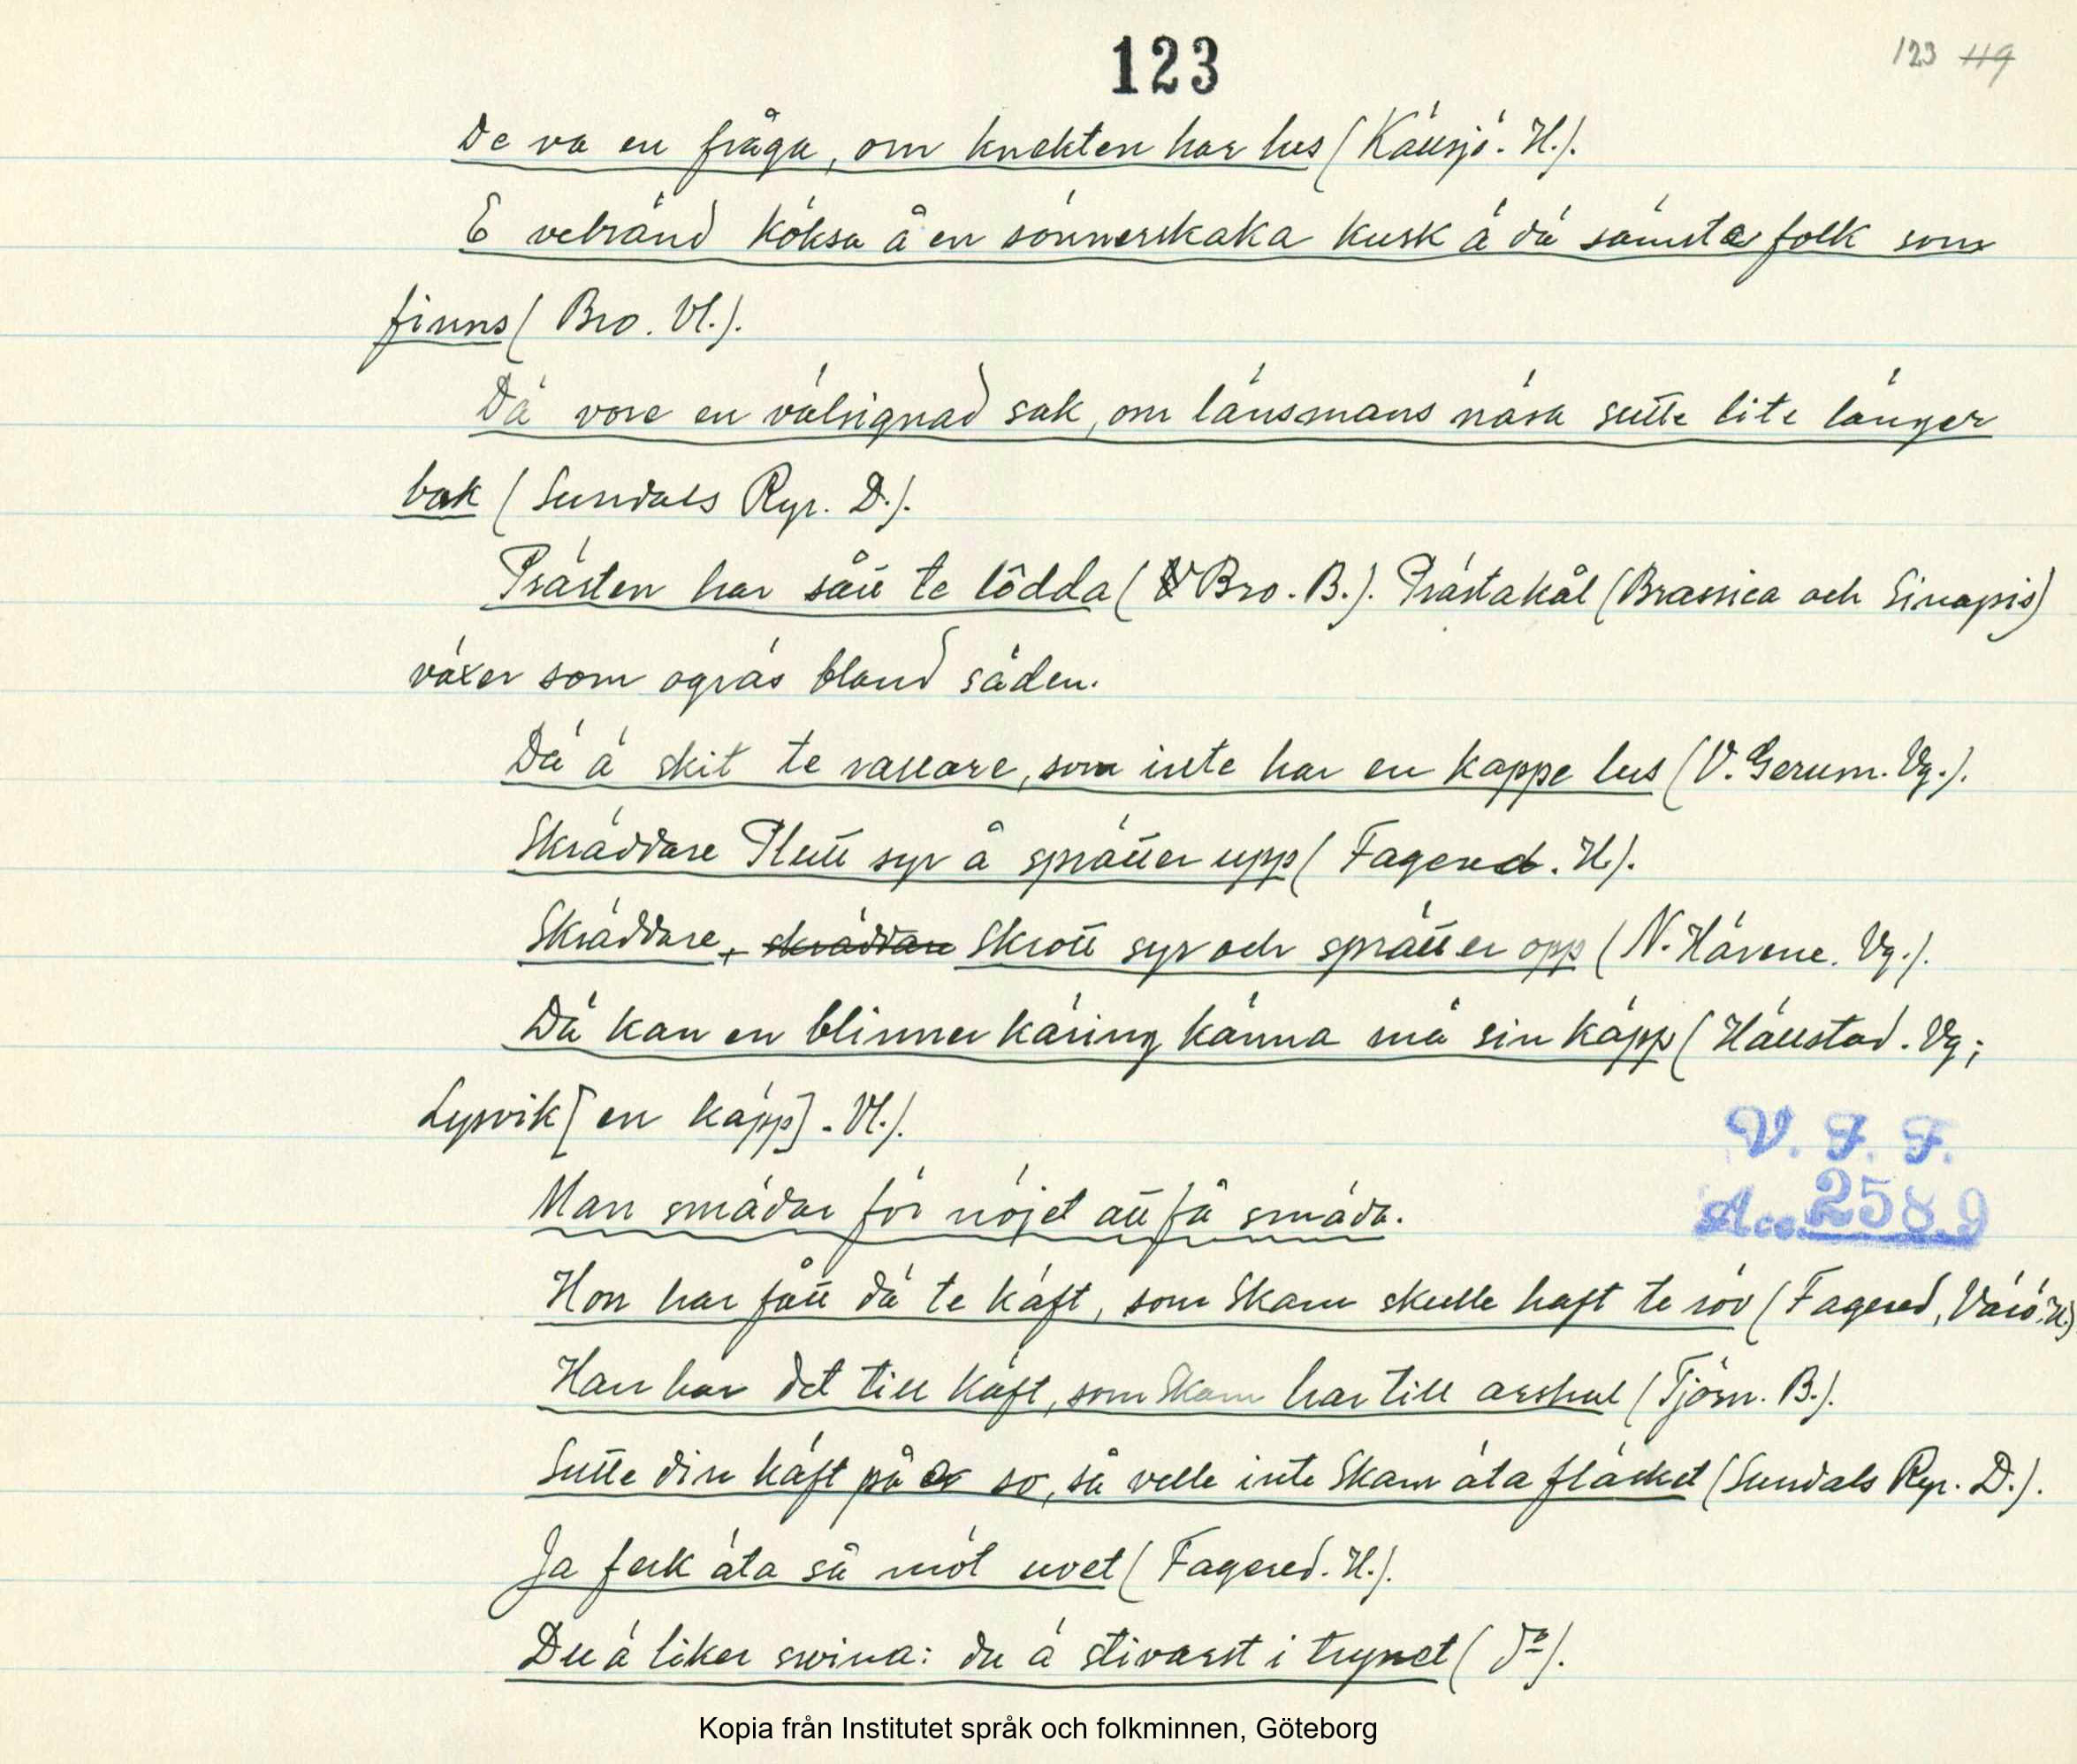 123
123 119
De va en fråga, om knekten har lus (Källsjö. H.).
E vebränd köksa å en sönnerskaka kusk ä dä sämsta folk som
finns (Bro. Vl.).
Dä vore en välsignad sak, om länsmans näsa sutte lite länger
bak (Sundals Ryr. D.).
Prästen har sått te lôdda (Bro. B.). Prästakål (Brassica och Sinapis)
växer som ogräs bland säden.
Dä ä skit te vallare, som inte har en kappe lus (V. Gerum. Vg.).
Skräddare Plutt syr å sprätter upp (Fagered. H.).
Skräddare, skräddare Skrott syr och sprätter opp (N. Härene. Vg.).
Dä kan en blinner käring känna mä sin käpp (Hällstad. Vg;
Lysvik [en käpp]. Vl.).
V. F. F.
Man smädar för nöjet att få smäda.
Acc. 2589
Hon har fått dä te käft, som Skam skulle haft te röv (Fagered, Värö. H.)
Han har det till käft, som Skam har till arshul (Tjörn. B.).
Sutte din käft på so, så velle inte Skam äta fläsket (Sundals Ryr. D.).
Ja feck äta så möt uvet (Fagered. H.).
Du ä liker svina: du ä stivast i trynet (do).
Kopia från Institutet språk och folkminnen, Göteborg